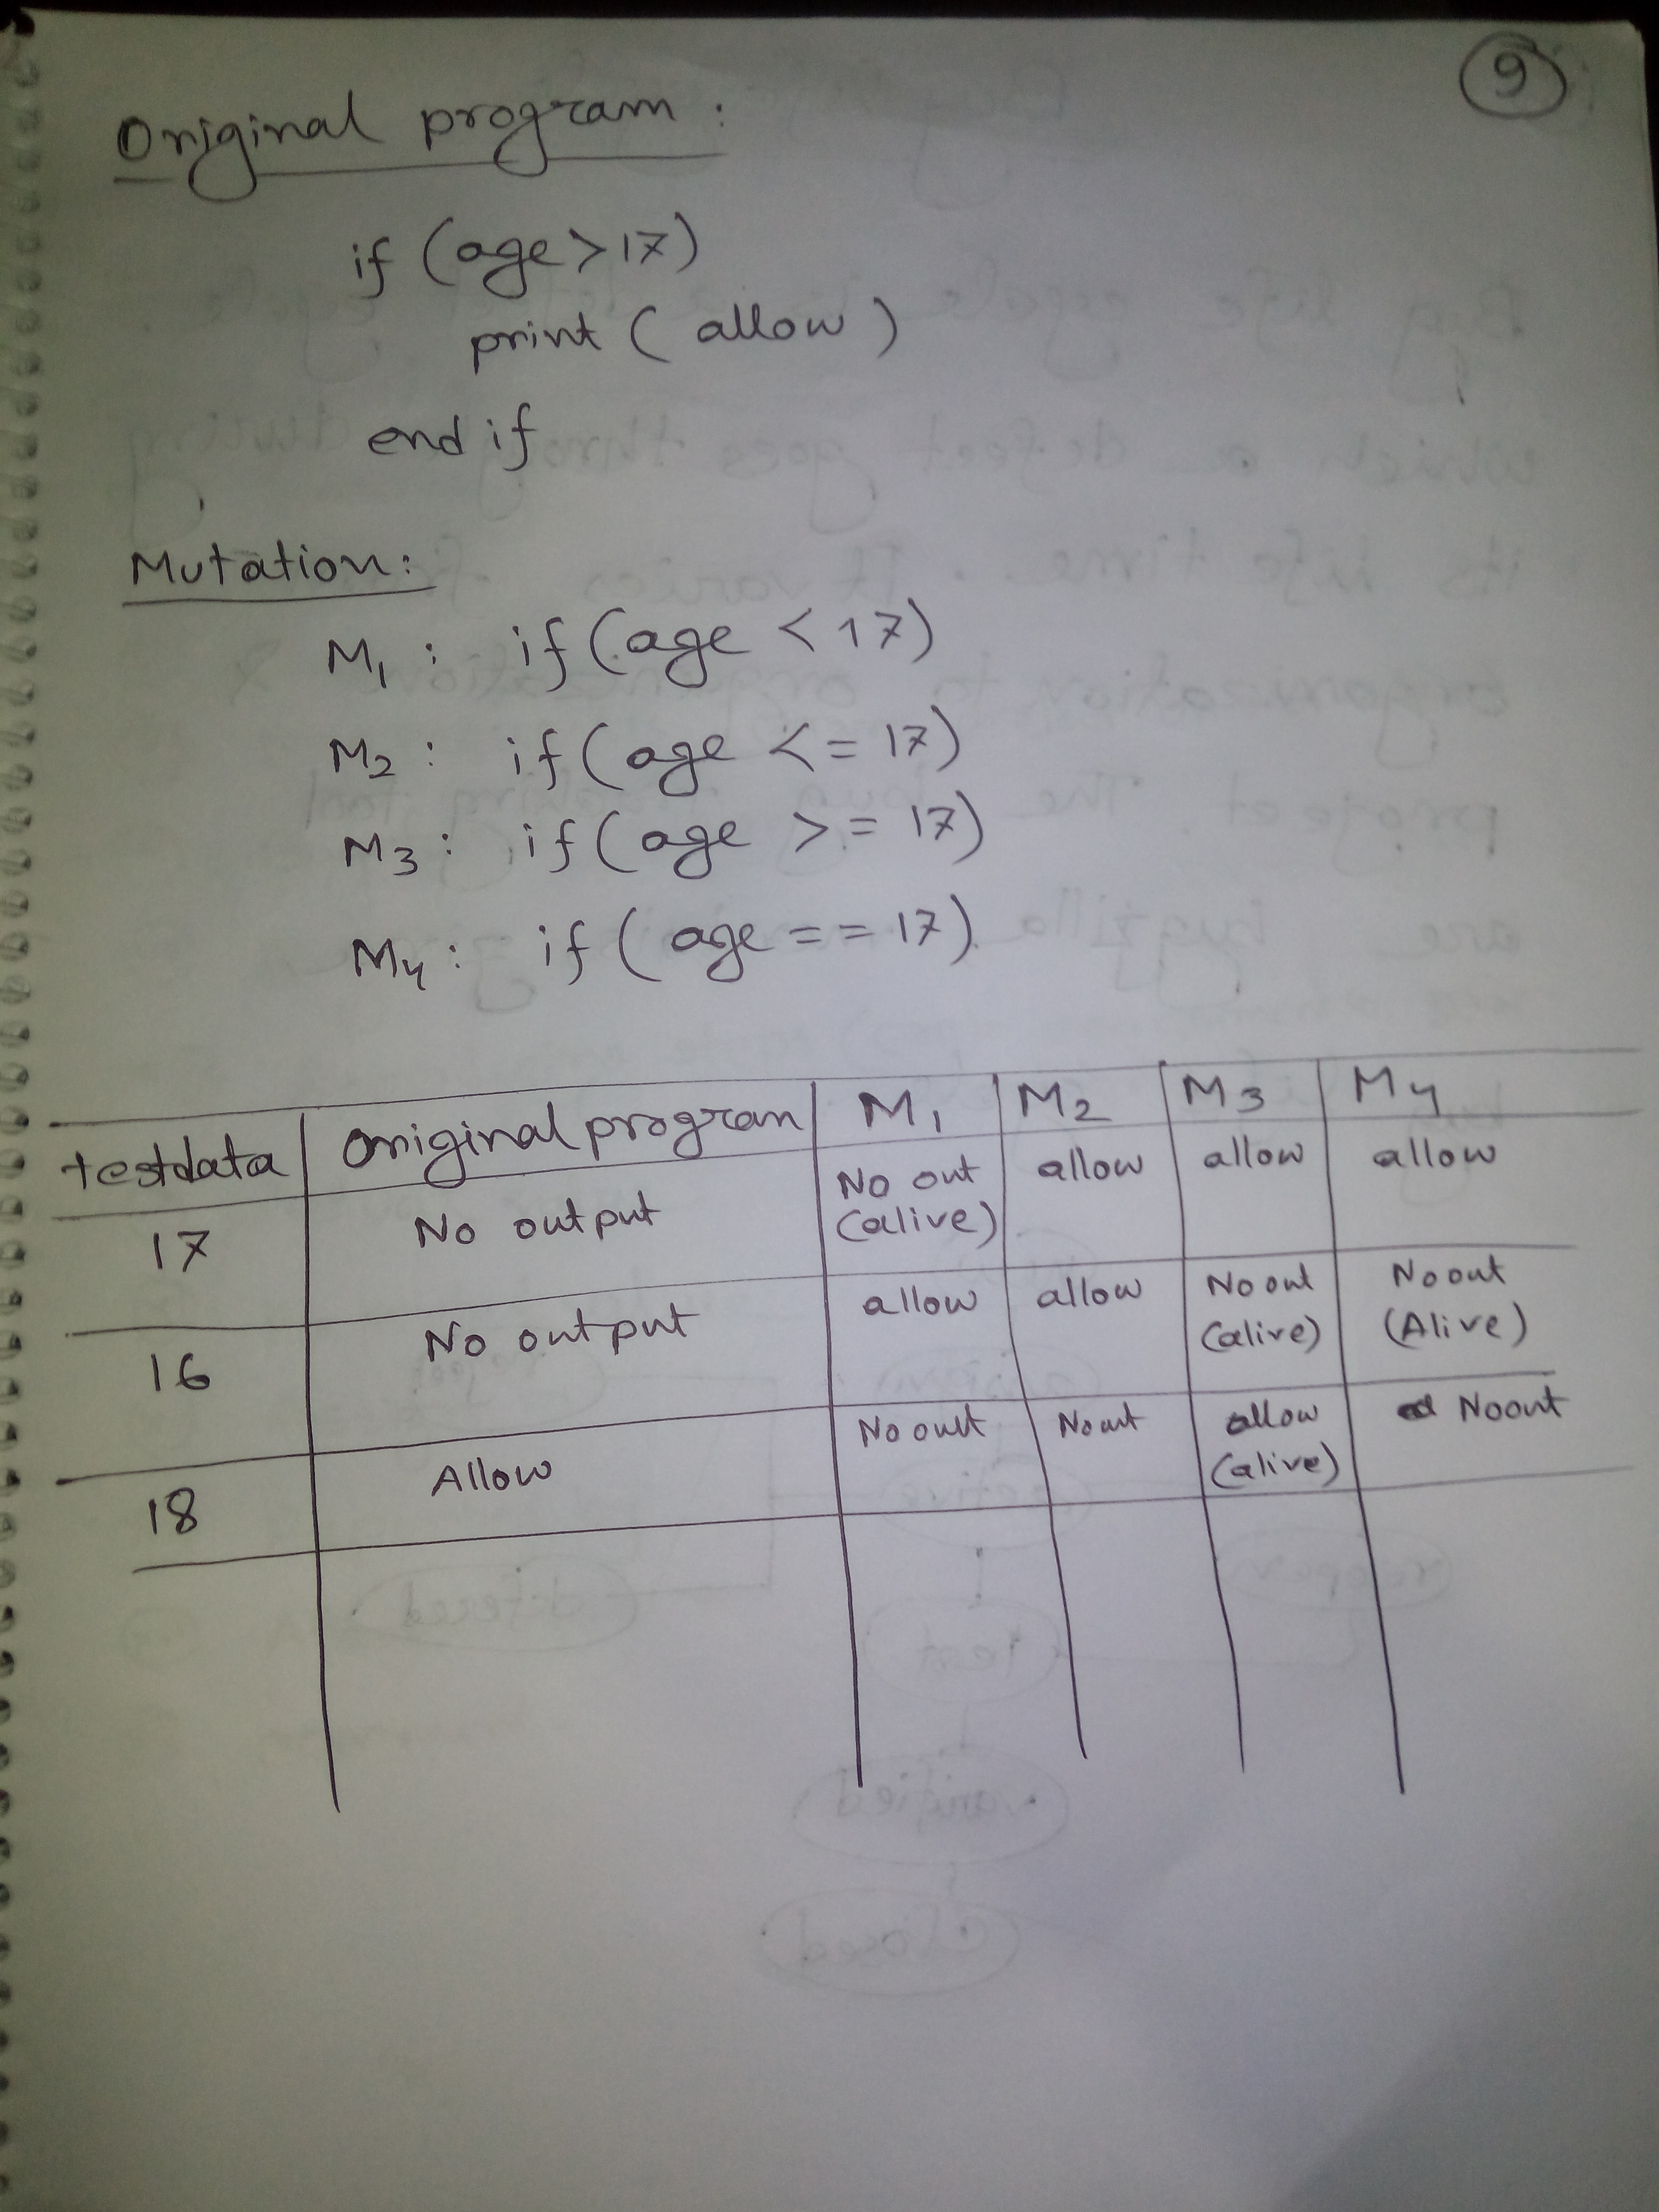 9
Original program:
if (age > 17)
print (allow)
end if
Mutation:
M1 : if (age < 17)
M2 : if (age <= 17)
M3 : if (age >= 17)
M4 : if (age == 17)
testdata Original program M1 M2 M3 M4
17 No output No out (alive) allow allow allow
16 No output allow allow No out (alive) No out (Alive)
18 Allow No out No out allow (alive) No out